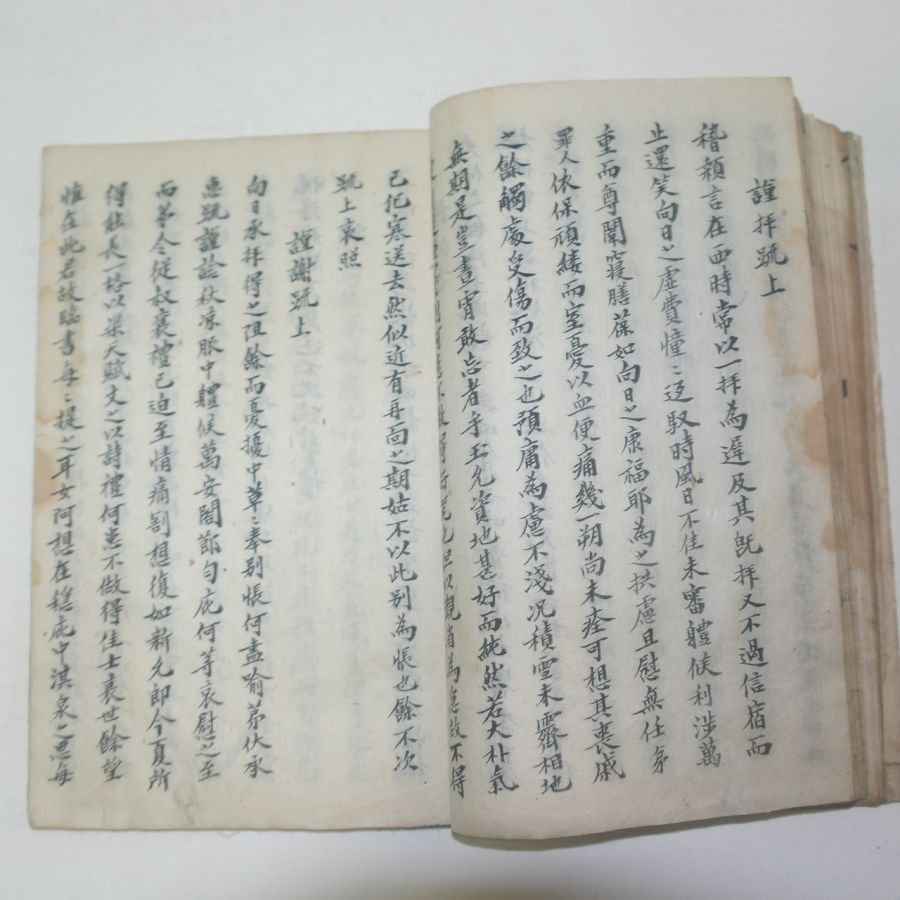 謹拜䟽上
稽顙言在西時常以一拜為遲及其旣拜又不過信宿而
止還笑向日之虛費憧〻迓馭時風日不佳未審軆候利涉萬
重而尊闈寢膳葆如向日之康福耶為之拱慮且慰無任弟
罪人依保頑縷而室憂以血便痛幾一朔尚未痊可想其喪戚
之餘觸處受傷而致之也預庸為慮不淺况積雪未霽相地
無期是豈晝宵敢忘者乎玉允資地甚好而純然若大朴氣
己化寒送去然似近有再面之期姑不以此別為悵也餘不次
䟽上哀照
謹謝䟽上
向日承拜得之阻餘而憂擾中草〻奉別悵何盡喻茀伏承
惠䟽謹諗秋凉服中軆候萬安閤節勻庇何等哀慰之至
而弟令從叔襄禮已迫至情痛割想復如新允郞今夏所
得能長一格以渠天賦文之以詩禮何患不做得佳士衰世餘望
惟在此君故臨書每〻提之耳女阿想在穩庇中淇泉之思每